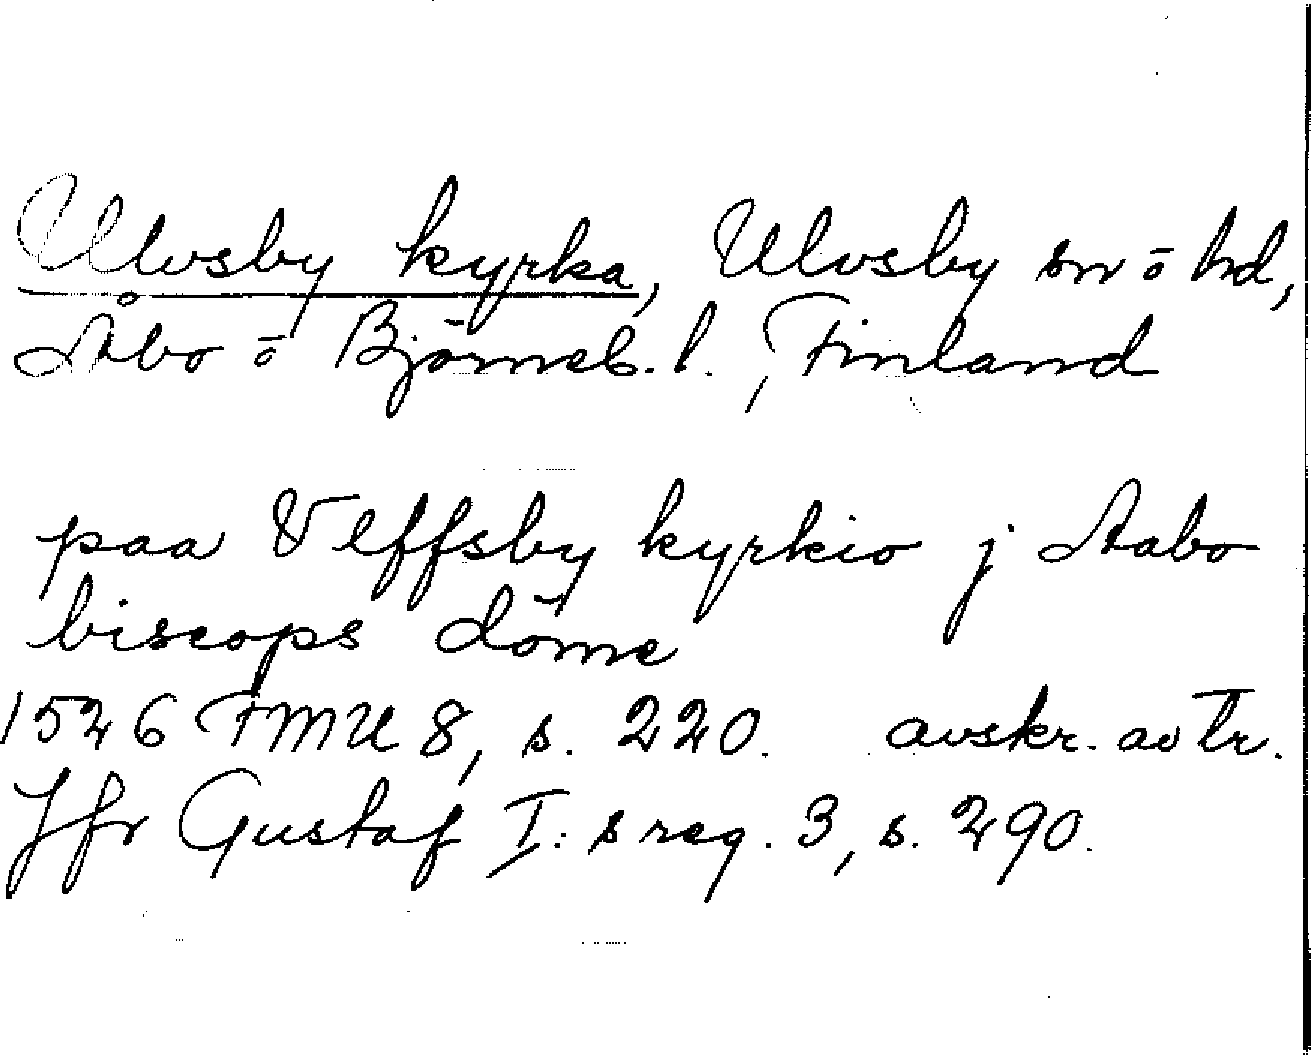 Ulvsby kyrka, Ulvsby sn ö hd,
Åbo ö Björneb. l., Finland
paa Vlffsby kyrkio j Aabo
biscops döme
1526 FMU 8, s. 220. avskr. av tr.
Jfr Gustaf I:s reg. 3, s. 290.